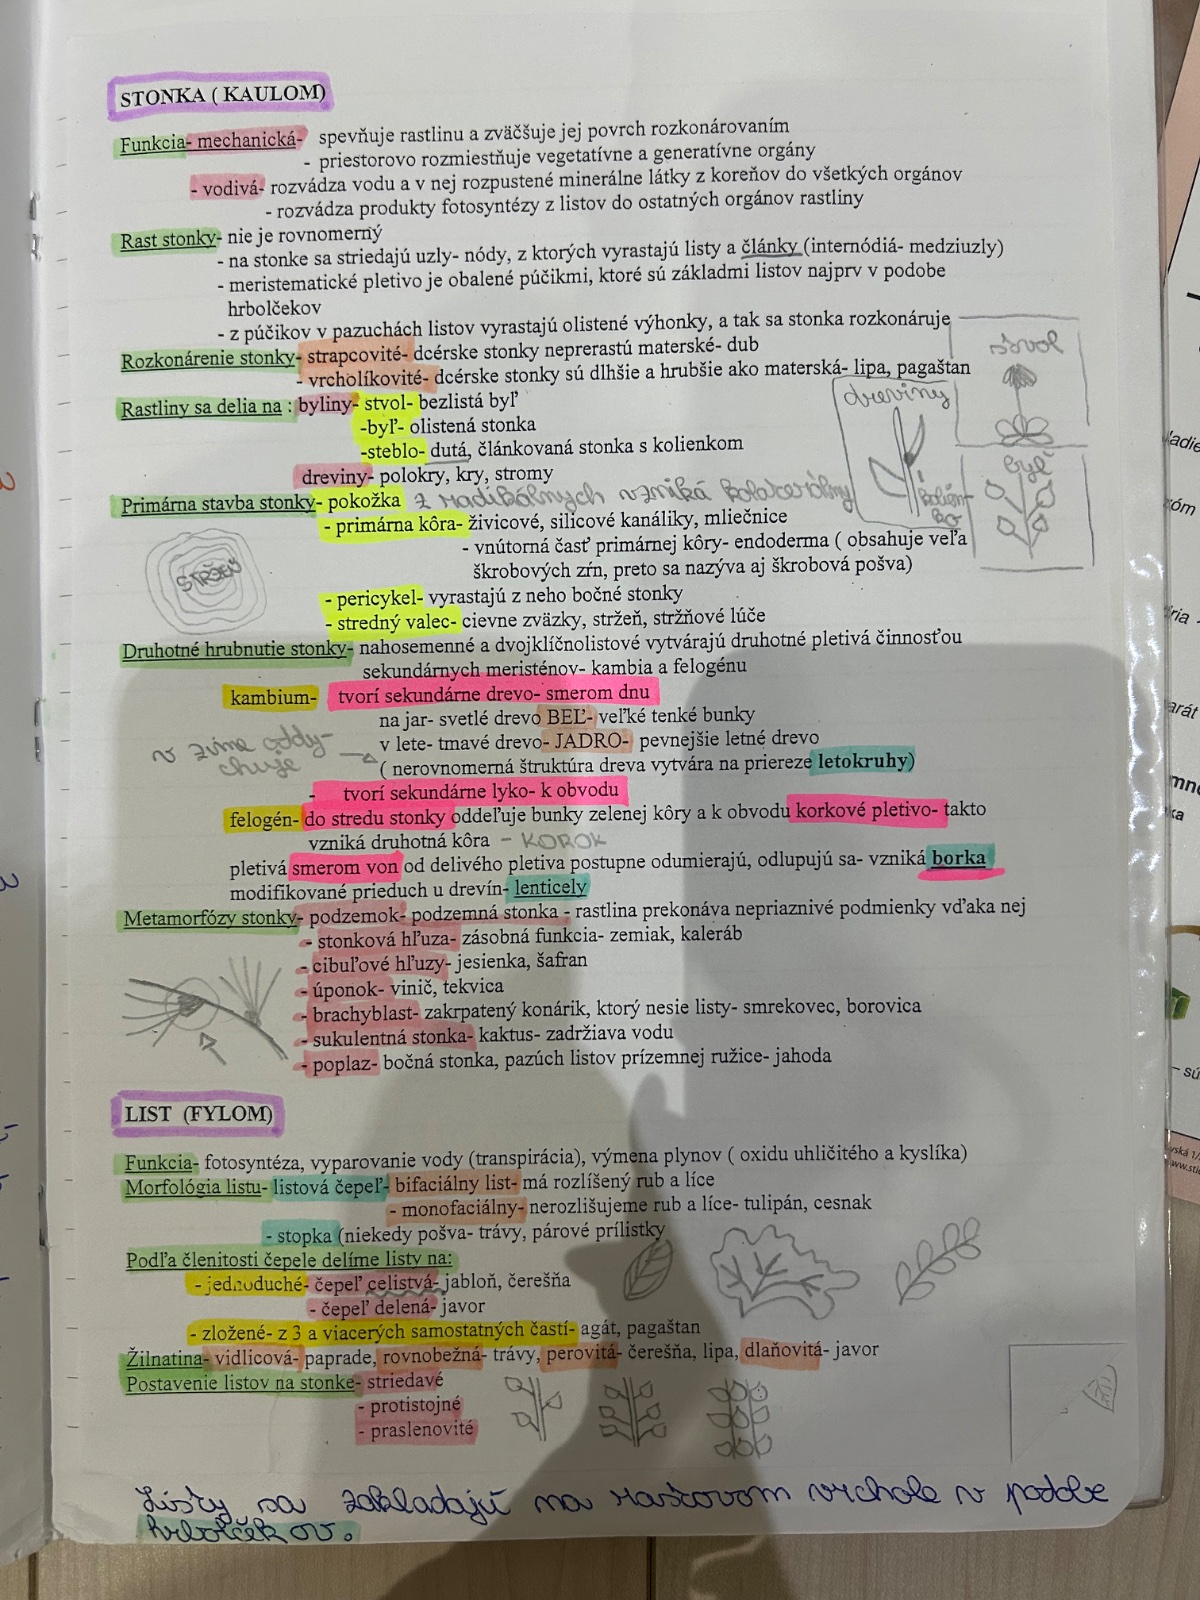 STONKA ( KAULOM)
Funkcia- mechanická- spevňuje rastlinu a zväčšuje jej povrch rozkonárovaním
- priestorovo rozmiestňuje vegetatívne a generatívne orgány
- vodivá- rozvádza vodu a v nej rozpustené minerálne látky z koreňov do všetkých orgánov
- rozvádza produkty fotosyntézy z listov do ostatných orgánov rastliny
Rast stonky- nie je rovnomerný
- na stonke sa striedajú uzly- nódy, z ktorých vyrastajú listy a články (internódiá- medziuzly)
- meristematické pletivo je obalené púčikmi, ktoré sú základmi listov najprv v podobe
hrbolčekov
- z púčikov v pazuchách listov vyrastajú olistené výhonky, a tak sa stonka rozkonáruje
Rozkonárenie stonky- strapcovité- dcérske stonky neprerastú materské- dub
- vrcholíkovité- dcérske stonky sú dlhšie a hrubšie ako materská- lipa, pagaštan
stvol
dreviny
Rastliny sa delia na : byliny- stvol- bezlistá byľ
-byľ- olistená stonka
-steblo- dutá, článkovaná stonka s kolienkom
byľ
kolien-
ko
dreviny- polokry, kry, stromy
Primárna stavba stonky- pokožka z radiálnych vzniká kolaterálny
- primárna kôra- živicové, silicové kanáliky, mliečnice
- vnútorná časť primárnej kôry- endoderma ( obsahuje veľa
škrobových zŕn, preto sa nazýva aj škrobová pošva)
STRŽEŇ
- pericykel- vyrastajú z neho bočné stonky
- stredný valec- cievne zväzky, stržeň, stržňové lúče
Druhotné hrubnutie stonky- nahosemenné a dvojklíčnolistové vytvárajú druhotné pletivá činnosťou
sekundárnych meristénov- kambia a felogénu
kambium- tvorí sekundárne drevo- smerom dnu
na jar- svetlé drevo BEĽ- veľké tenké bunky
v zime oddy-
chuje
v lete- tmavé drevo- JADRO- pevnejšie letné drevo
( nerovnomerná štruktúra dreva vytvára na priereze letokruhy)
- tvorí sekundárne lyko- k obvodu
felogén- do stredu stonky oddeľuje bunky zelenej kôry a k obvodu korkové pletivo- takto
vzniká druhotná kôra - KOROK
pletivá smerom von od delivého pletiva postupne odumierajú, odlupujú sa- vzniká borka
modifikované prieduch u drevín- lenticely
Metamorfózy stonky- podzemok- podzemná stonka - rastlina prekonáva nepriaznivé podmienky vďaka nej
- stonková hľuza- zásobná funkcia- zemiak, kaleráb
- cibuľové hľuzy- jesienka, šafran
- úponok- vinič, tekvica
- brachyblast- zakrpatený konárik, ktorý nesie listy- smrekovec, borovica
- sukulentná stonka- kaktus- zadržiava vodu
- poplaz- bočná stonka, pazúch listov prízemnej ružice- jahoda
LIST (FYLOM)
Funkcia- fotosyntéza, vyparovanie vody (transpirácia), výmena plynov ( oxidu uhličitého a kyslíka)
Morfológia listu- listová čepeľ- bifaciálny list- má rozlíšený rub a líce
- monofaciálny- nerozlišujeme rub a líce- tulipán, cesnak
- stopka (niekedy pošva- trávy, párové prílistky
Podľa členitosti čepele delíme listy na:
- jednoduché- čepeľ celistvá- jabloň, čerešňa
- čepeľ delená- javor
- zložené- z 3 a viacerých samostatných častí- agát, pagaštan
Žilnatina- vidlicová- paprade, rovnobežná- trávy, perovitá- čerešňa, lipa, dlaňovitá- javor
Postavenie listov na stonke- striedavé
- protistojné
- praslenovité
Listy sa zakladajú na rastovom vrchole v podobe
hrbolčekov.